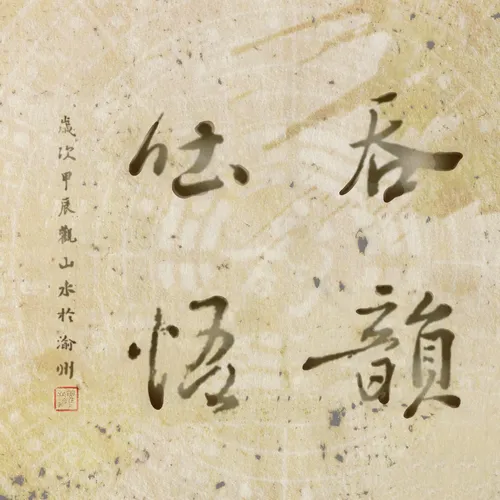 吞韻
吐悟
歲次甲辰觀山水於渝州